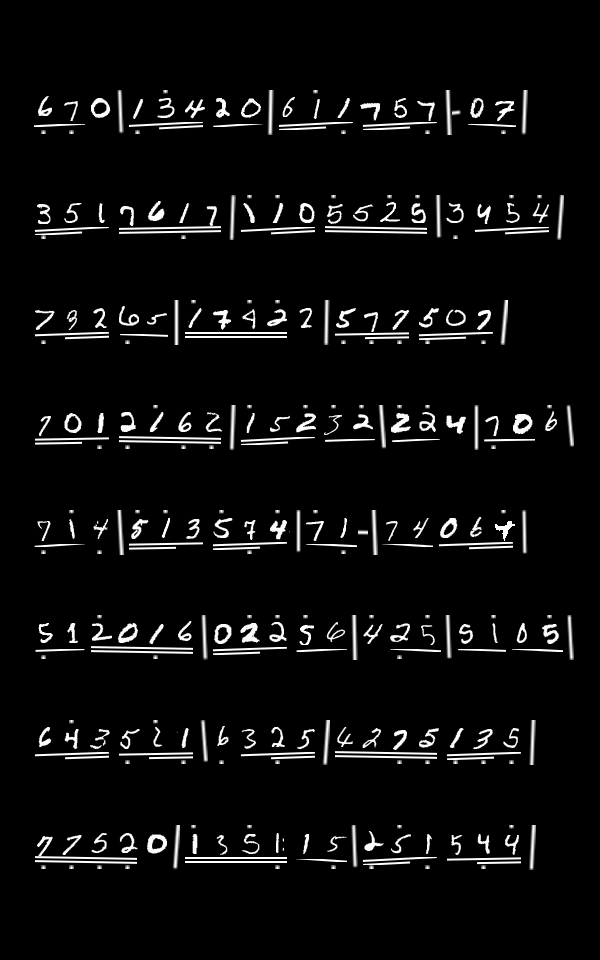 670|13420|611757|-07
3517617|1105525|3454
73265|17422|577507
7012162|15232|224|706
714|513574|71-|74067
512016|02256|425|5105
643521|6325|4275135
77520|135115|251544